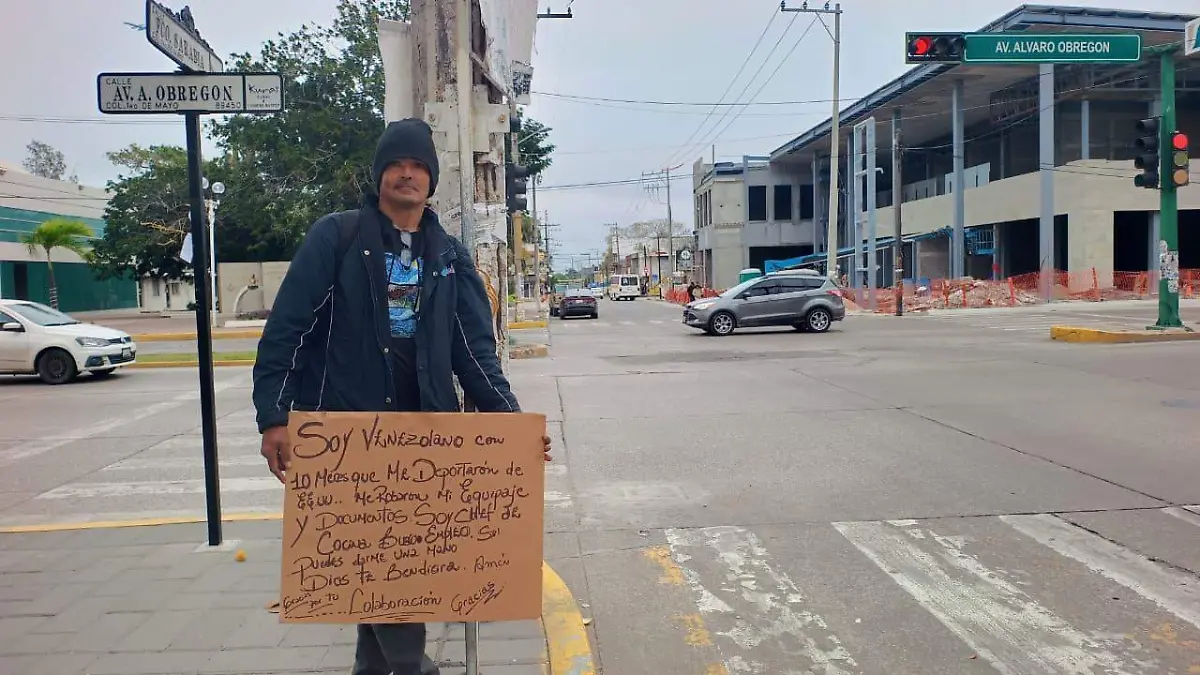 FCO. SARABIA
CALLE
AV. A. OBREGON
COL. 1ro DE MAYO 89450
Kumas
AV. ALVARO OBREGON
Soy VENEZOlANO con
10 Meses que Me Deportarón de
EEUU.. Me Robaron Mi Equipaje
y Documentos Soy Chef de
Cocina Busco Empleo. Si
Puedes darme una mano
Dios te Bendicira. Amén
Gracias por tu ..... Colaboración Gracias